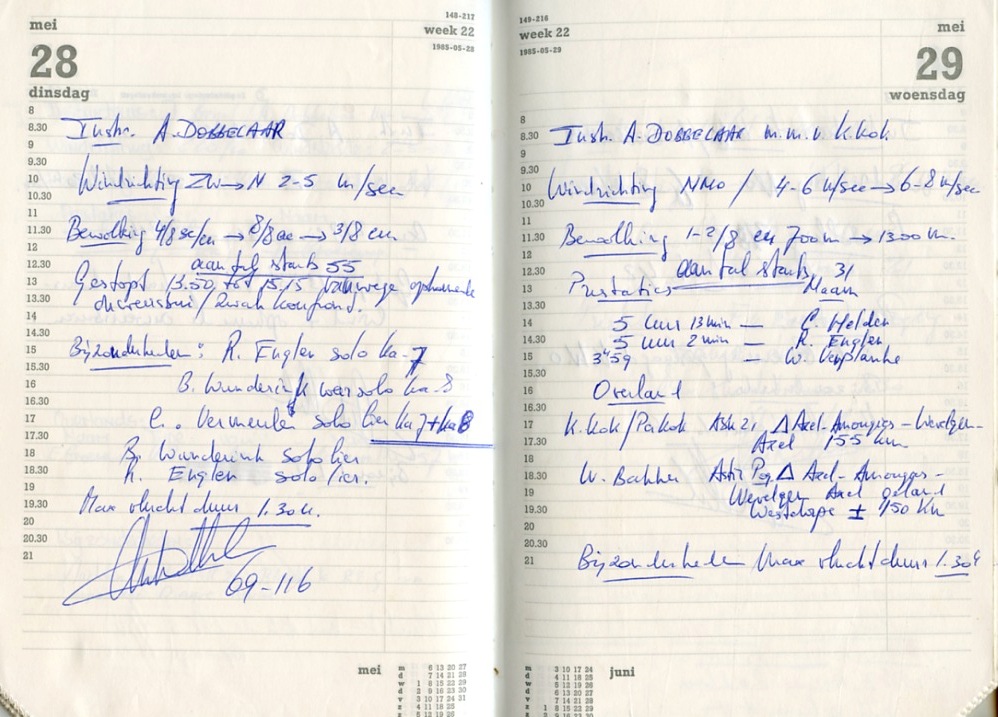 mei
28
dinsdag
148-217
week 22
1985-05-28
8
8.30 Instr. A. DOBBELAAR
9
9.30
10 Windrichting ZW → N 2-5 m/sec
10.30
11
11.30 Bewolking 4/8 → 8/8 → 3/8 cu.
12
12.30 aantal starts 55
13 Gestopt 13.50 tot 15.15 vanwege opkomende
13.30
14
14.30
15 Bijzonderheden: R. Engler solo Ka-7
15.30
16 B. Wunderink solo Ka-8
16.30
17 C. Vermeulen solo lier Ka7+Ka8
17.30
18 B. Wunderink solo lier
18.30 R. Engler solo lier.
19
19.30 Max vluchtduur 1.30 u.
20
20.30
21
69-116
mei
m 6 13 20 27
d 7 14 21 28
w 1 8 15 22 29
d 2 9 16 23 30
v 3 10 17 24 31
z 4 11 18 25
z 5 12 19 26
149-216
week 22
1985-05-29
mei
29
woensdag
8
8.30 Instr. A. DOBBELAAR m.m.v. K. Kok
9
9.30
10 Windrichting NNO / 4-6 m/sec → 6-8 m/sec
10.30
11
11.30 Bewolking 1-2/8 cu 700m → 1300 m.
12
12.30 aantal starts 31
13 Prestaties Naam
13.30
14 5 uur 13 min — G. Helden
14.30 5 uur 2 min — R. Engler
15 3.59 — W. Verplanke
15.30
16 Overland
16.30
17 K. Kok / Pa Kok Ask 21 Δ Axel-Amougies-Wevelgem-
17.30 Axel 155 km
18
18.30 W. Bakker Astir Δ Axel-Amougies-
19 Wevelgem Axel geland
19.30 Westdorpe ± 150 km
20
20.30
21 Bijzonderheden Max vluchtduur 1.30 u
juni
m 3 10 17 24
d 4 11 18 25
w 5 12 19 26
d 6 13 20 27
v 7 14 21 28
z 1 8 15 22 29
z 2 9 16 23 30